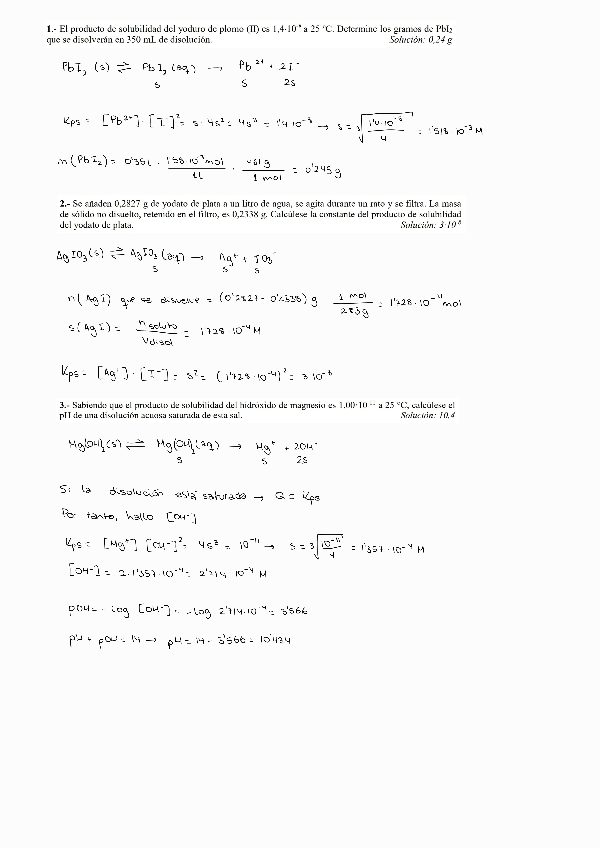 1.- El producto de solubilidad del yoduro de plomo (II) es 1,4·10⁻⁸ a 25 °C. Determine los gramos de PbI₂
que se disolverán en 350 mL de disolución. Solución: 0,24 g
PbI₂ (s) ⇌ PbI₂ (aq) → Pb²⁺ + 2I⁻
s s 2s
Kps = [Pb²⁺]·[I⁻]² = s·4s² = 4s³ = 1'4·10⁻⁸ → s = ³√(1'4·10⁻⁸/4) = 1'518·10⁻³ M
m (PbI₂) = 0'35L · 1'58·10⁻³mol/1L · 461g/1 mol = 0'245g
2.- Se añaden 0,2827 g de yodato de plata a un litro de agua, se agita durante un rato y se filtra. La masa
de sólido no disuelto, retenido en el filtro, es 0,2338 g. Calcúlese la constante del producto de solubilidad
del yodato de plata. Solución: 3·10⁻⁸
AgIO₃(s) ⇌ AgIO₃(aq) → Ag⁺ + IO₃⁻
s s s
n(AgI) que se disuelve = (0'2827 - 0'2338) g 1 mol/283g = 1'728·10⁻⁴mol
s(AgI) = n soluto/Vdisol = 1'728·10⁻⁴M
Kps = [Ag⁺]·[I⁻] = s² = (1'728·10⁻⁴)² = 3·10⁻⁸
3.- Sabiendo que el producto de solubilidad del hidróxido de magnesio es 1,00·10⁻¹¹ a 25 °C, calcúlese el
pH de una disolución acuosa saturada de esta sal. Solución: 10,4
Mg(OH)₂(s) ⇌ Mg(OH)₂(aq) → Mg⁺ + 2OH⁻
s s 2s
Si la disolución está saturada → Q = Kps
Por tanto, hallo [OH⁻]
Kps = [Mg⁺] [OH⁻]² = 4s³ = 10⁻¹¹ → s = ³√(10⁻¹¹/4) = 1'357·10⁻⁴ M
[OH⁻] = 2·1'357·10⁻⁴ = 2'714·10⁻⁴ M
pOH = -log [OH⁻] = -log 2'714·10⁻⁴ = 3'566
pH + pOH = 14 → pH = 14 - 3'566 = 10'434